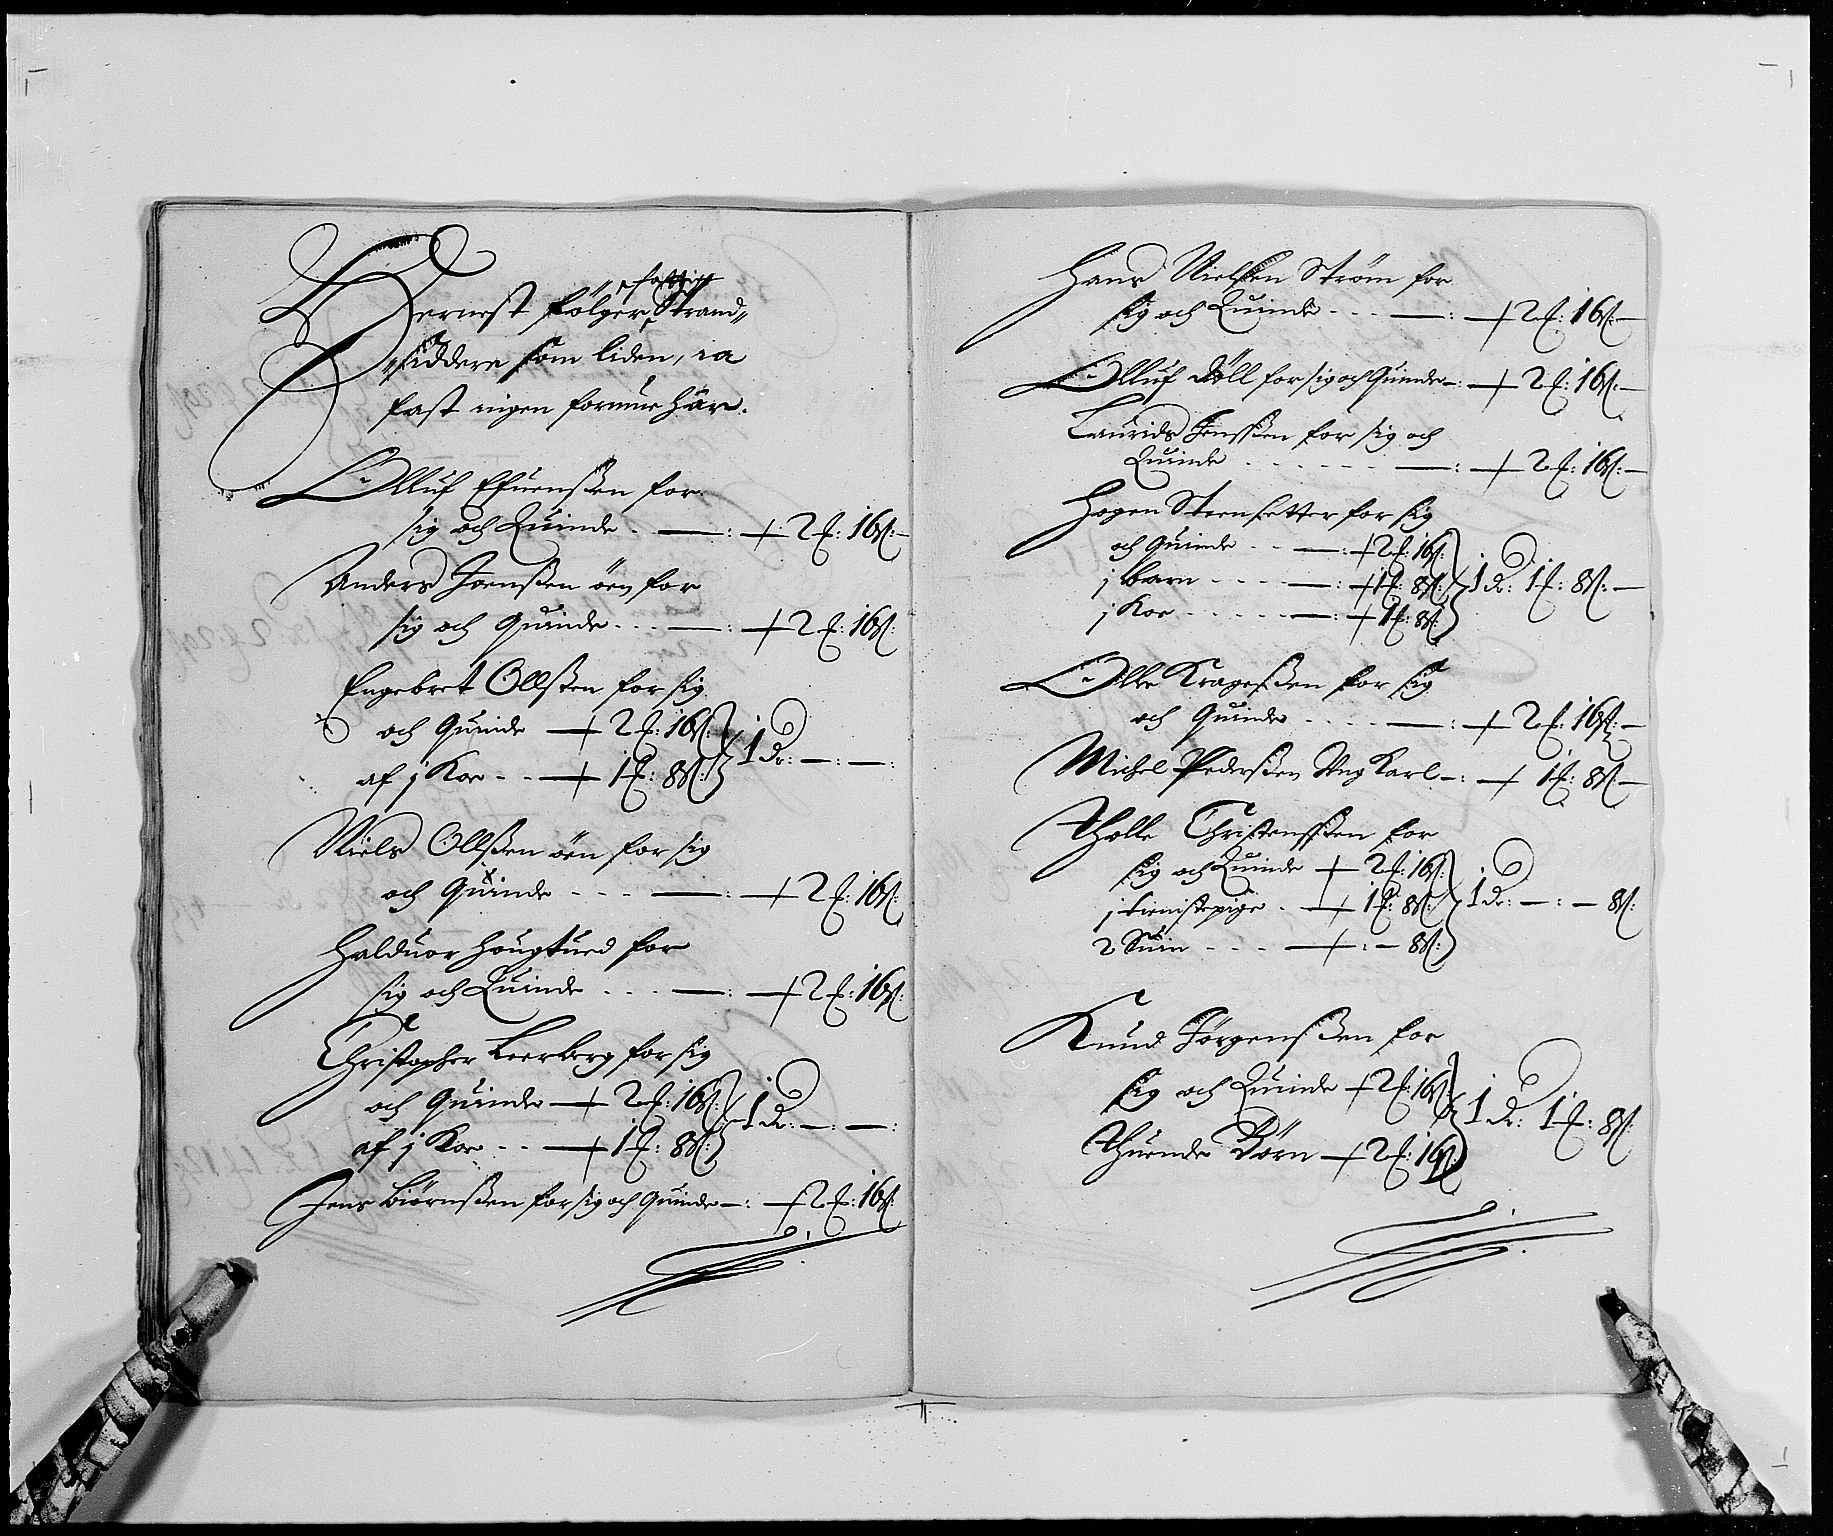 fattige
Dernest fölger Strand-
siddere som liden, ia
fast ingen formue har.
Olluf Efuenssen for
sig och Quinde - - — : 2 ʄ: 16 ß: —
Anders Joenssen öen for
sig och Quinde - - - — : 2 ʄ: 16 ß:
Engebret Ollssen for sig
och Quinde — 2 ʄ: 16 ß:
af j Koe - - — 1 ʄ: 8 ß: } 1 dr: — : — :
Niels Ollssen öen for sig
och Quinde - - - — : 2 ʄ: 16 ß:
Halduor Hougtued for
sig och Quinde - - - — : 2 ʄ: 16 ß:
Christopher Leerberg for sig
och Quinde — 2 ʄ: 16 ß:
af j Koe - - — 1 ʄ: 8 ß: } 1 dr: — : — :
Jens Biörnssen for sig och Quinde — : 2 ʄ: 16 ß:
Hans Nielssen Ström for
sig och Quinde - - - — : 2 ʄ: 16 ß: —
Olluf Döll for sig och Quinde — : 2 ʄ: 16 ß: —
Laurids Jenssen for sig och
Quinde - - - - - - — : 2 ʄ: 16 ß: —
Hogen Steensetter for sig
och Quinde - - — : 2 ʄ: 16 ß:
j barn - - - - — : 1 ʄ: 8 ß: } 1 dr: 1 ʄ: 8 ß: —
j Koe - - - - - — : 1 ʄ: 8 ß:
Olle Kragessen for sig
och Quinde - - - - — : 2 ʄ: 16 ß: —
Michel Pederssen Ung Karl — : 1 ʄ: 8 ß: —
Tholle Christenssen for
sig och Quinde 2 ʄ: 16 ß:
j tienistepige - 1 ʄ: 8 ß: } 1 dr: — : — 8 ß:
2 Suin - - - — : — 8 ß:
Knud Jörgenssen for
sig och Quinde 2 ʄ: 16 ß:
Thuende Börn 2 ʄ: 16 ß: } 1 dr: 1 ʄ: 8 ß: